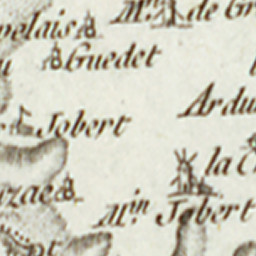 pelais
M.in de Gr
Guedet
Ardu
Jobert
la C
zac
M.in Jobert